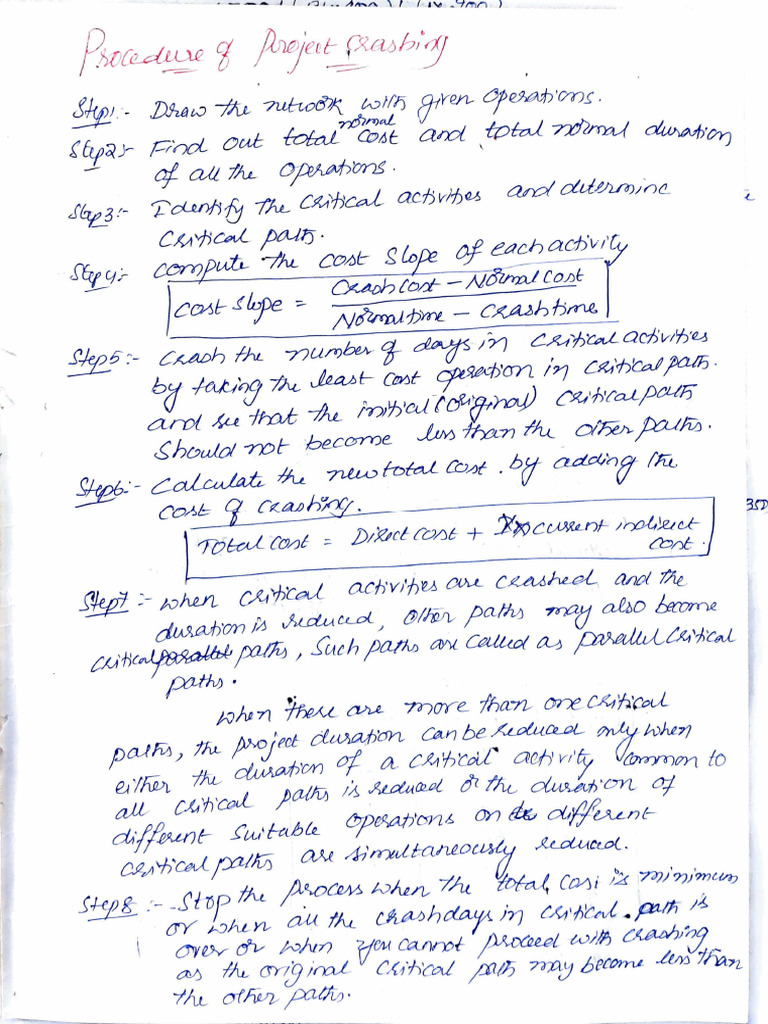 Procedure of Project Crashing
Step1:- Draw the network with given operations.
Step2:- Find out total normal cost and total normal duration
of all the operations.
Step3:- Identify the critical activities and determine
critical path.
Step4:- compute the cost slope of each activity
Cost slope = Crash cost - Normal cost
Normal time - Crash time
Step5:- Crash the number of days in critical activities
by taking the least cost operation in critical path.
and see that the initial (original) critical path
should not become less than the other paths.
Step6:- Calculate the new total cost. by adding the
cost of crashing.
350
Total cost = Direct cost + Incurrent indirect
cost.
Step7:- when critical activities are crashed and the
duration is reduced, other paths may also become
critical parallel paths, such paths are called as parallel critical
paths.
when there are more than one critical
paths, the project duration can be reduced only when
either the duration of a critical activity common to
all critical paths is reduced or the duration of
different suitable operations on different
critical paths are simultaneously reduced.
Step8:- Stop the process when the total cost is minimum
or when all the crash days in critical path is
over or when you cannot proceed with crashing
as the original critical path may become less than
the other paths.